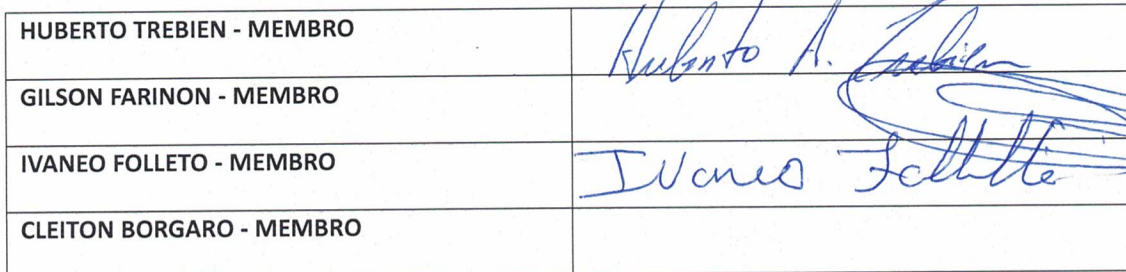 HUBERTO TREBIEN - MEMBRO
Huberto A. Trebien
GILSON FARINON - MEMBRO
IVANEO FOLLETO - MEMBRO
Ivaneo Folletto
CLEITON BORGARO - MEMBRO